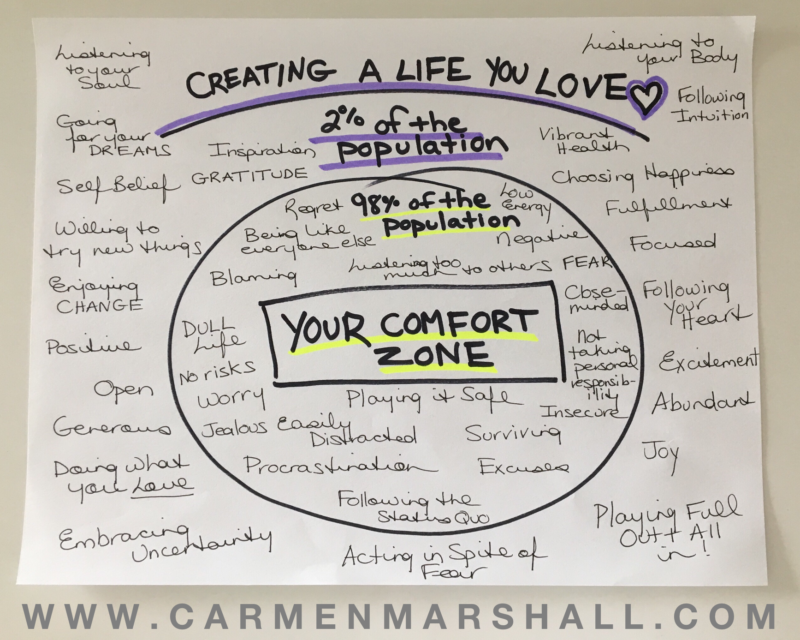 CREATING A LIFE YOU LOVE
2% of the
population
Listening
to your
Soul
Going
for your
DREAMS
Inspiration
GRATITUDE
Self Belief
Willing to
try new things
Enjoying
CHANGE
Positive
Open
Generous
Doing what
you Love
Embracing
Uncertainty
Acting in Spite of
Fear
Listening to
your Body
Following
Intuition
Vibrant
Health
Choosing Happiness
Fulfillment
Focused
Following
Your
Heart
Excitement
Abundant
Joy
Playing Full
Out + All
in!
98% of the
population
Regret
Low
Energy
Being Like
everyone else
Negative
Blaming
Listening too
much to others
FEAR
YOUR COMFORT
ZONE
DULL
Life
No risks
Worry
Close-
minded
Not
taking
personal
responsib-
ility
Playing it Safe
Insecure
Jealous
Easily
Distracted
Surviving
Procrastination
Excuses
Following the
Status Quo
WWW.CARMENMARSHALL.COM